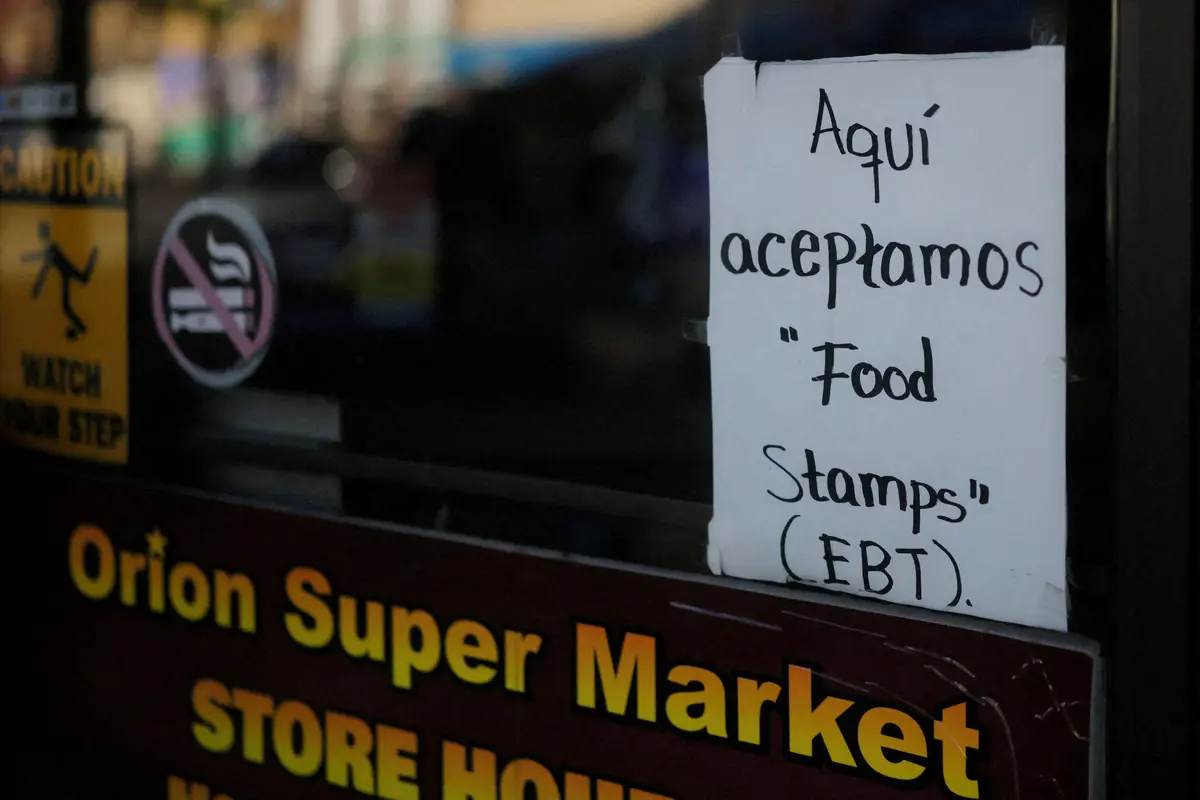 CAUTION
WATCH
YOUR STEP
Aquí
aceptamos
"Food
Stamps"
(EBT).
Orion Super Market
STORE HOU